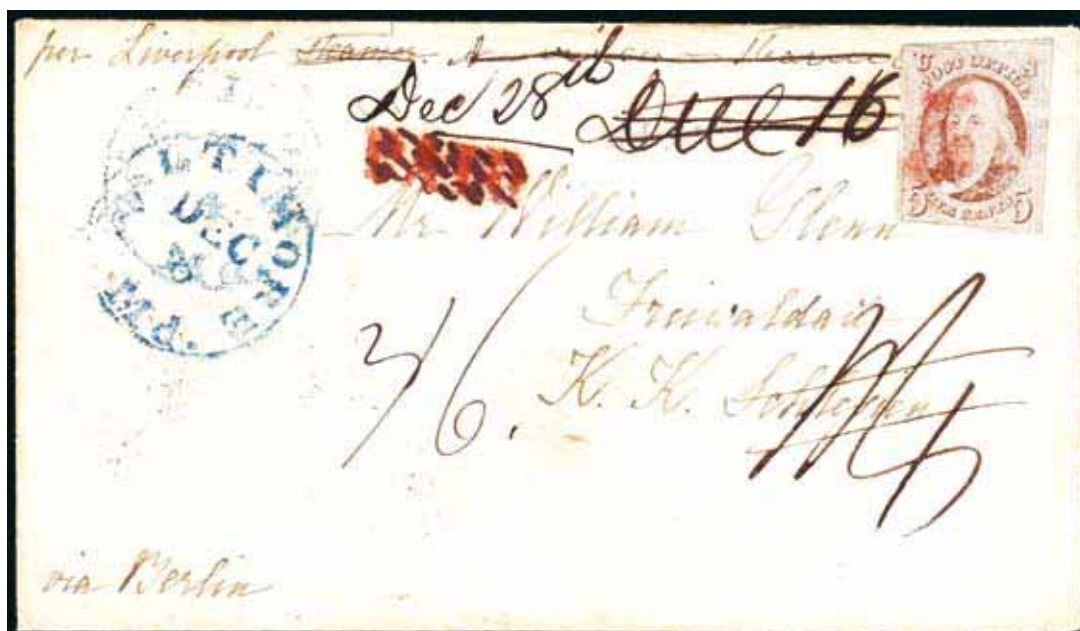 per Liverpool Steamer
Dec 28th Dec 16
POST OFFICE
5 5
BALTIMORE Md.
DEC
Mr. William Glenn
Freiwaldau
K. K. Schlesien
3/6.
via Berlin